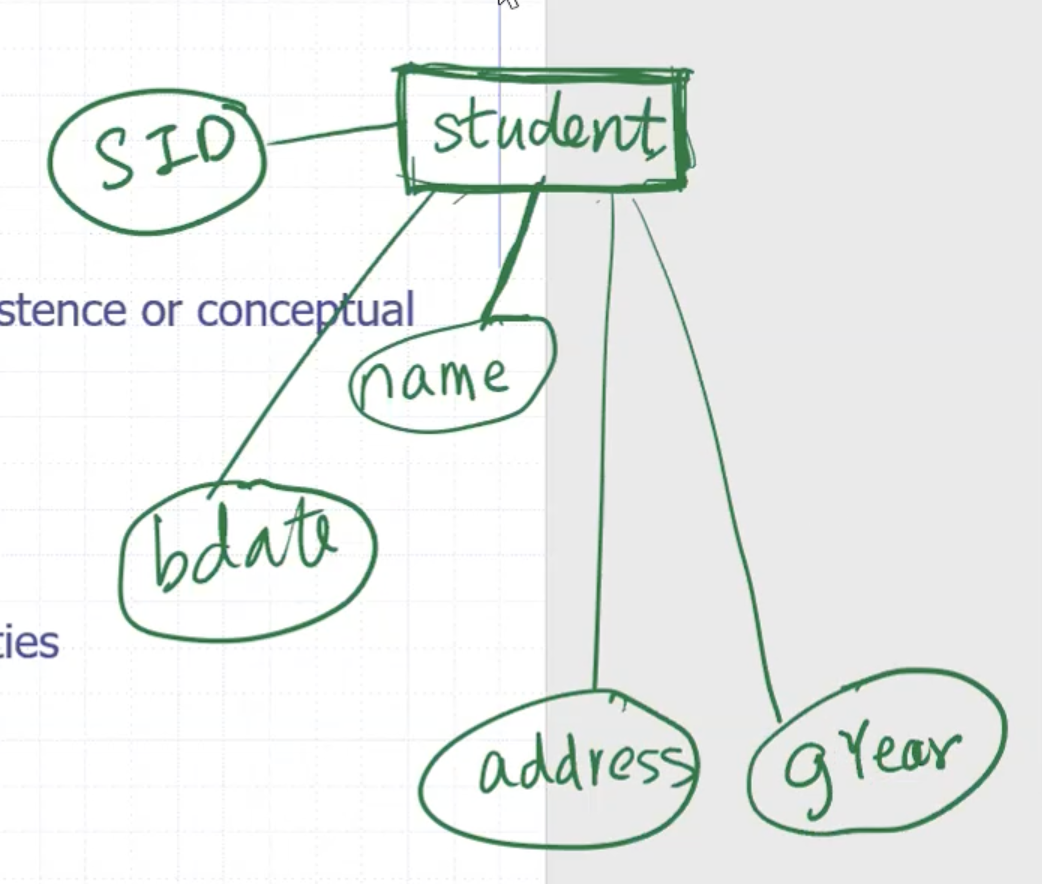 student
SID
stence or conceptual
name
bdate
ties
address
gYear